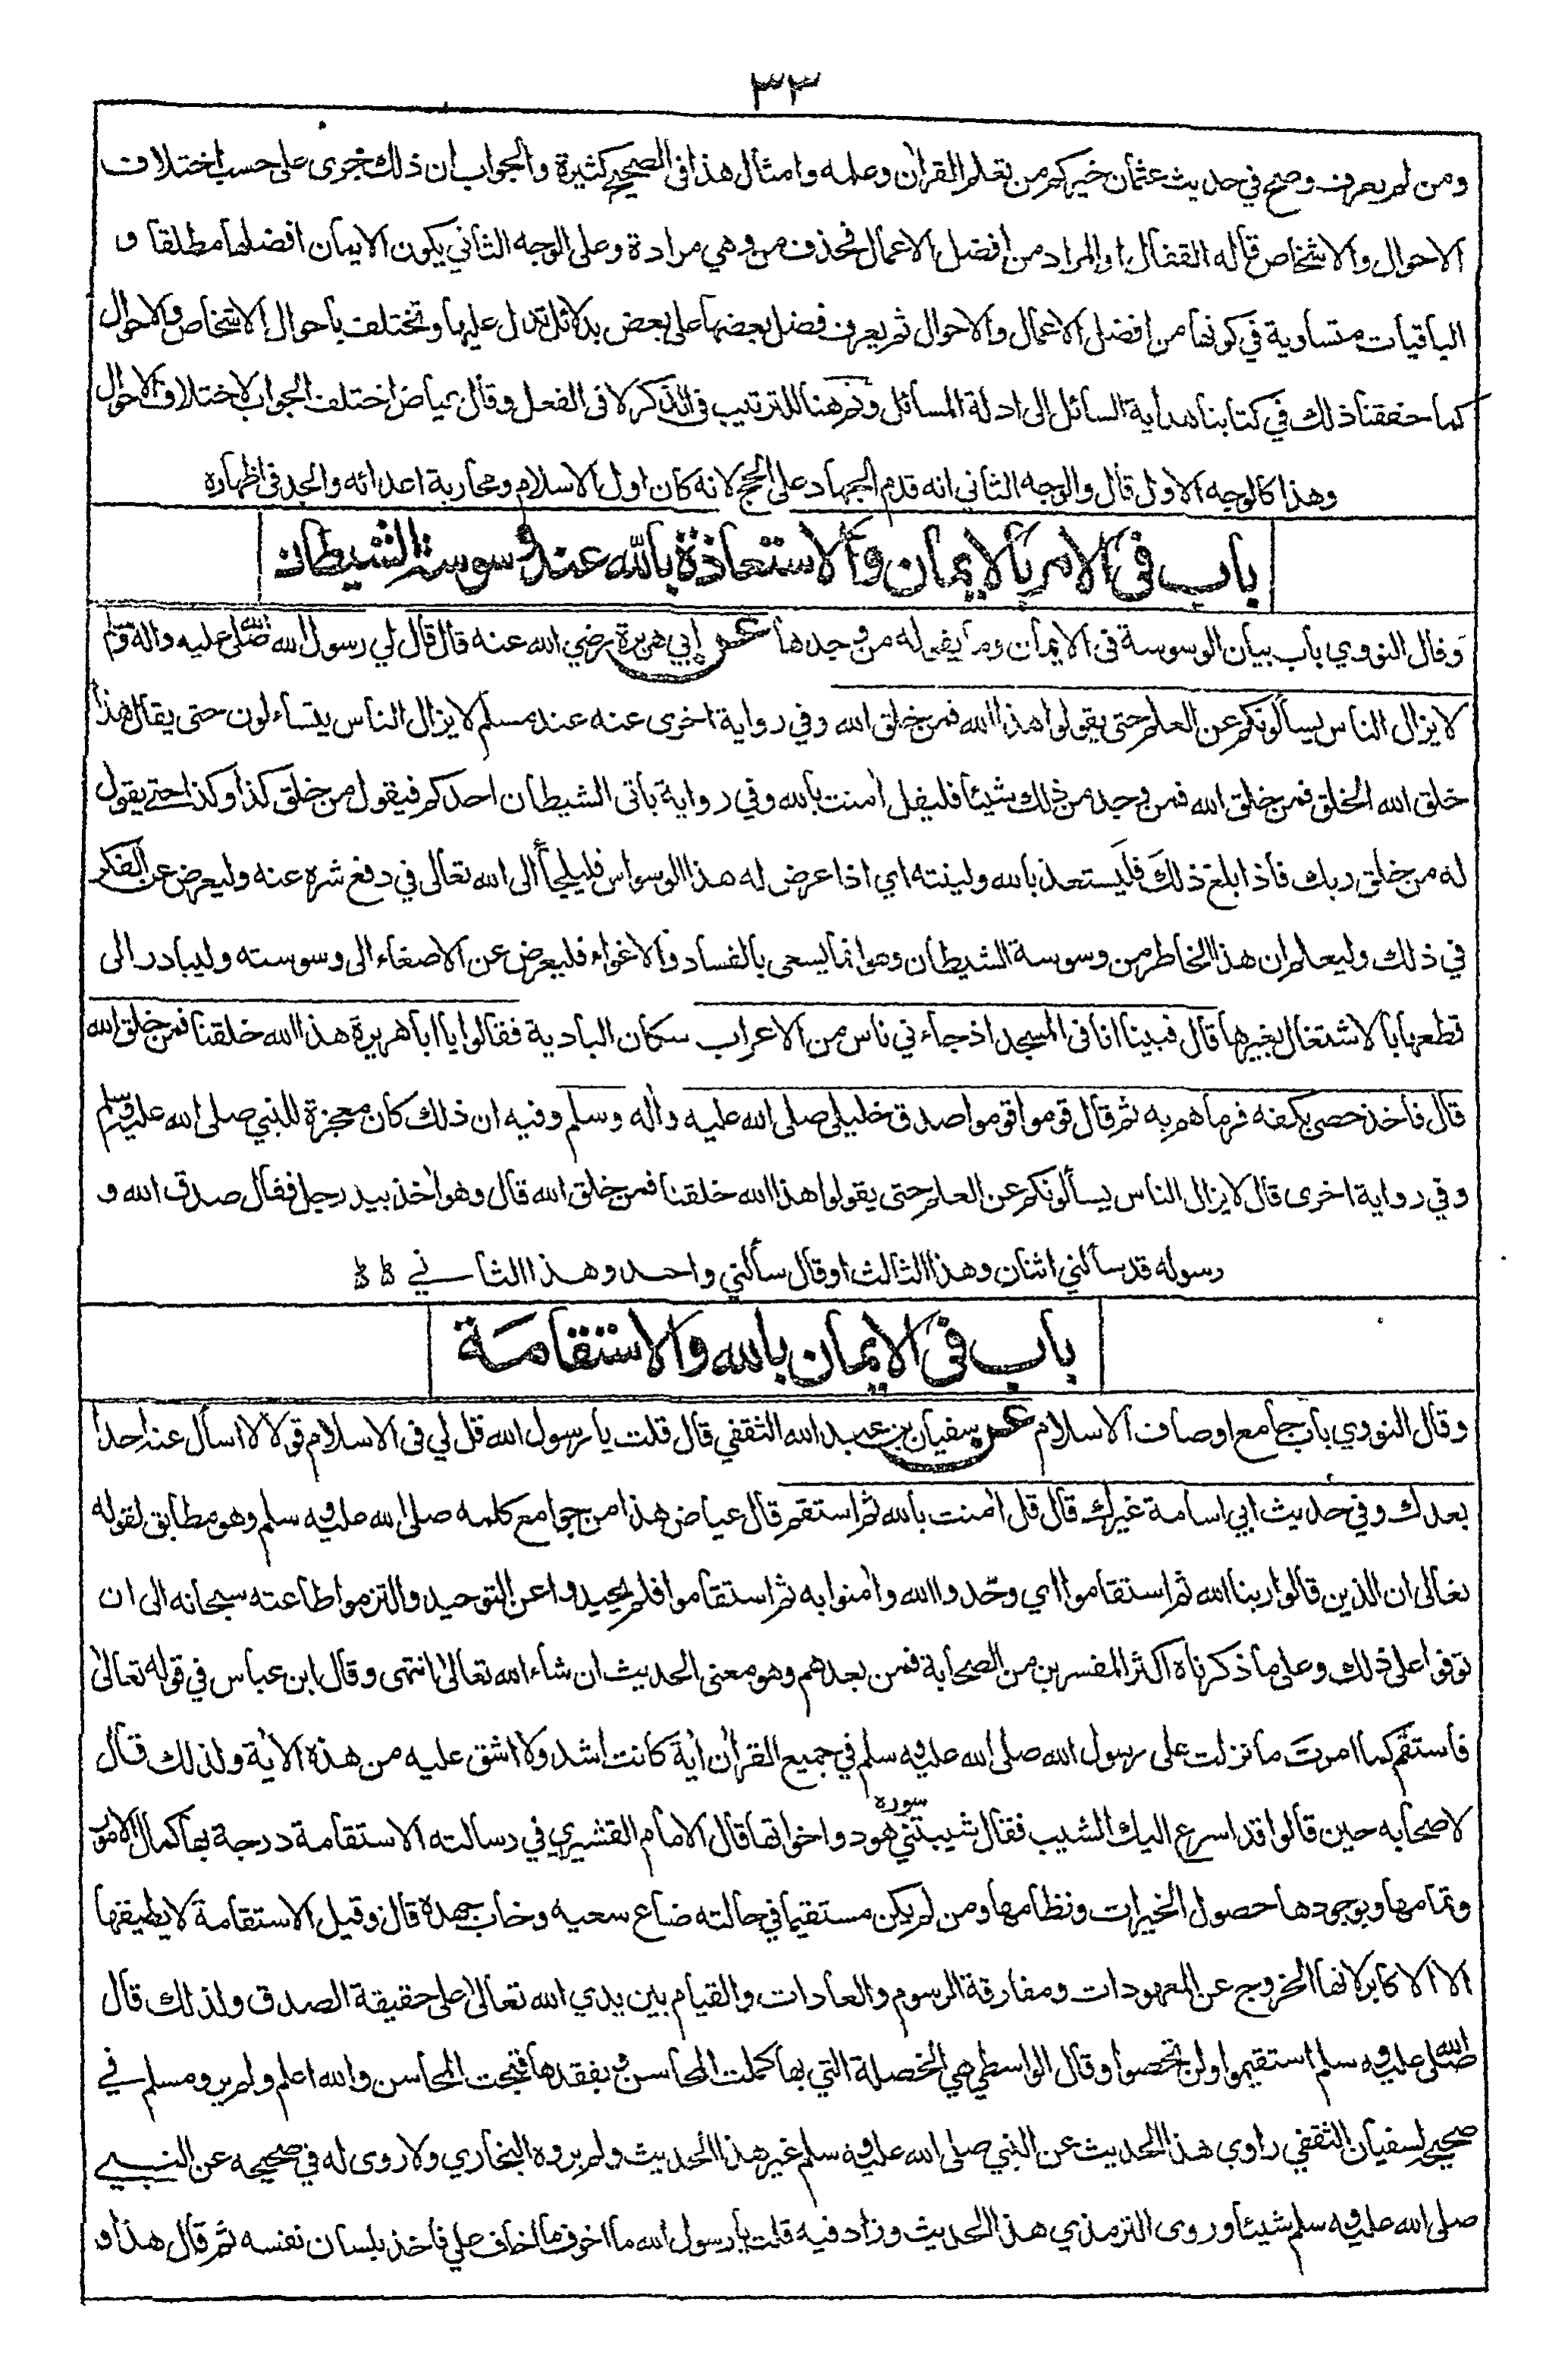 ٣٣
ومن لم يعرف وصح في حديث عثمان خيركم من تعلم القرآن وعلمه وامثال هذا في الصحيح كثيرة والجواب ان ذلك جرى على حسب اختلاف
الاحوال والاشخاص قاله القفال او المراد من افضل الاعمال فحذف من وهي مرادة وعلى الوجه الثاني يكون الايمان افضلها مطلقا و
الباقيات متساوية في كونها من افضل الاعمال والاحوال ثم يعرف فضل بعضها على بعض بدلائل تدل عليها وتختلف باحوال الاشخاص والاحوال
كما حققنا ذلك في كتابنا هداية السائل الى ادلة المسائل وثم هنا للترتيب في الذكر لا في الفعل وقال عياض اختلف الجواب لاختلاف الاحوال
وهذا كالوجه الاول قال والوجه الثاني انه قدم الجهاد على الحج لانه كان اول الاسلام ومحاربة اعدائه والجد في اظهاره
باب في الامر بالايمان والاستعاذة بالله عند وسوسة الشيطان
وقال النووي باب بيان الوسوسة في الايمان وما يقوله من وجدها عن ابي هريرة رضي الله عنه قال قال لي رسول الله صلى الله عليه واله وسلم
لا يزال الناس يسألونكم عن العلم حتى يقولوا هذا الله فمن خلق الله وفي رواية اخرى عنه عند مسلم لا يزال الناس يتساءلون حتى يقال هذا
خلق الله الخلق فمن خلق الله فمن وجد من ذلك شيئا فليقل آمنت بالله وفي رواية يأتى الشيطان احدكم فيقول من خلق كذا وكذا حتى يقول
له من خلق ربك فاذا بلغ ذلك فليستعذ بالله ولينته اي اذا عرض له هذا الوسواس فليلجأ الى الله تعالى في دفع شره عنه وليعرض عن الفكر
في ذلك وليعلم ان هذا الخاطر من وسوسة الشيطان وهو انما يسعى بالفساد والاغواء فليعرض عن الاصغاء الى وسوسته وليبادر الى
قطعها بالاشتغال بغيرها قال فبينا انا في المسجد اذ جاءني ناس من الاعراب سكان البادية فقالوا يا ابا هريرة هذا الله خلقنا فمن خلق الله
قال فاخذ حصى بكفه فرماهم به ثم قال قوموا قوموا صدق خليلي صلى الله عليه وآله وسلم وفيه ان ذلك كان معجزة للنبي صلى الله عليه وسلم
وفي رواية اخرى قال لا يزال الناس يسألونكم عن العلم حتى يقولوا هذا الله خلقنا فمن خلق الله قال وهو آخذ بيد رجل فقال صدق الله و
رسوله قد سألني اثنان وهذا الثالث او قال سألني واحد وهذا الثاني
باب في الايمان بالله والاستقامة
وقال النووي باب جامع اوصاف الاسلام عن سفيان بن عبد الله الثقفي قال قلت يا رسول الله قل لي في الاسلام قولا لا اسأل عنه احدا
بعدك وفي حديث ابي اسامة غيرك قال قل آمنت بالله ثم استقم قال عياض هذا من جوامع كلمه صلى الله عليه وسلم وهو مطابق لقوله
تعالى ان الذين قالوا ربنا الله ثم استقاموا اي وحّدوا الله وآمنوا به ثم استقاموا فلم يحيدوا عن التوحيد والتزموا طاعته سبحانه الى ان
توفوا على ذلك وعلى ما ذكرناه اكثر المفسرين من الصحابة فمن بعدهم وهو معنى الحديث ان شاء الله تعالى انتهى وقال ابن عباس في قوله تعالى
فاستقم كما امرت ما نزلت على رسول الله صلى الله عليه وسلم في جميع القرآن آية كانت اشد ولا اشق عليه من هذه الآية ولذلك قال
لاصحابه حين قالوا قد اسرع اليك الشيب فقال شيبتني سورة هود واخواتها قال الامام القشيري في رسالته الاستقامة درجة بها كمال الامور
وتمامها وبوجودها حصول الخيرات ونظامها ومن لم يكن مستقيما في حالته ضاع سعيه وخاب جهده قال وقيل الاستقامة لا يطيقها
الا الاكابر لانها الخروج عن المعهودات ومفارقة الرسوم والعادات والقيام بين يدي الله تعالى على حقيقة الصدق ولذلك قال
صلى الله عليه وسلم استقيموا ولن تحصوا وقال الواسطي هي الخصلة التي بها كملت المحاسن وبفقدها قبحت المحاسن والله اعلم ولم يرو مسلم في
صحيحه لسفيان الثقفي راوي هذا الحديث عن النبي صلى الله عليه وسلم غير هذا الحديث ولم يروه البخاري ولا روى له في صحيحه عن النبي
صلى الله عليه وسلم شيئا وروى الترمذي هذا الحديث وزاد فيه قلت يا رسول الله ما اخوف ما اخاف علي فاخذ بلسان نفسه ثم قال هذا و